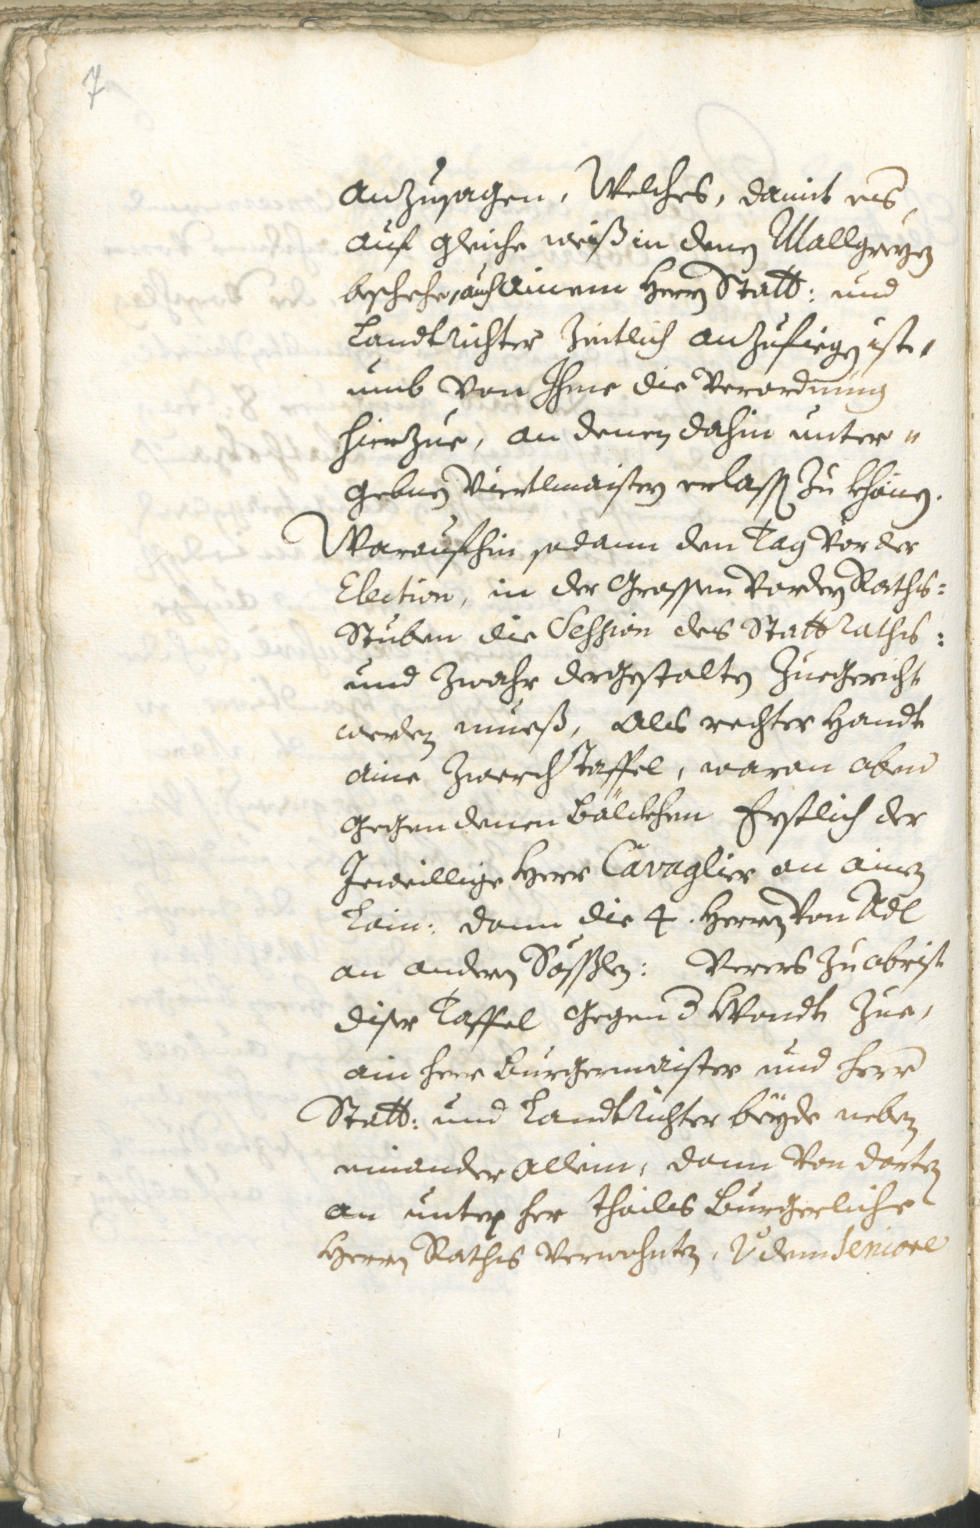 7
anzusagen, Welches, damit es
auf gleiche weiß in denen Mallgreyen
beschehe, auch ainem Herrn Statt: und
Landtrichter zeitlich anzufiegen ist,
umb von Ihme die Verordnung
hierzue, an denen dahin unter„
gebnen Viertlmaistern erlassen zu khönen.
Woraufhin sodann den Tag vor der
Election, in der Grossen vordern Raths=
Stuben die Session des Statt Raths:
und zwahr dergestalten Zuegericht
werden mueß, als rechter Handt
aine zwerch Taffel, waran oben
gegen denen Bälckhen Erstlich der
Jeweillige Herr Cavaglier an ainem
Lain: dann die 4. Herren von Adl
an andern Sösslen: Verers zu obrist
diser Taffel gegen d Wandt zue,
ain herr Burgermaister und herr
Statt: und Landtrichter beyde neben
einander allein, dann von dorten
an unter her theils Burgerliche
Herrn Raths Verwohnten, dem Seniore